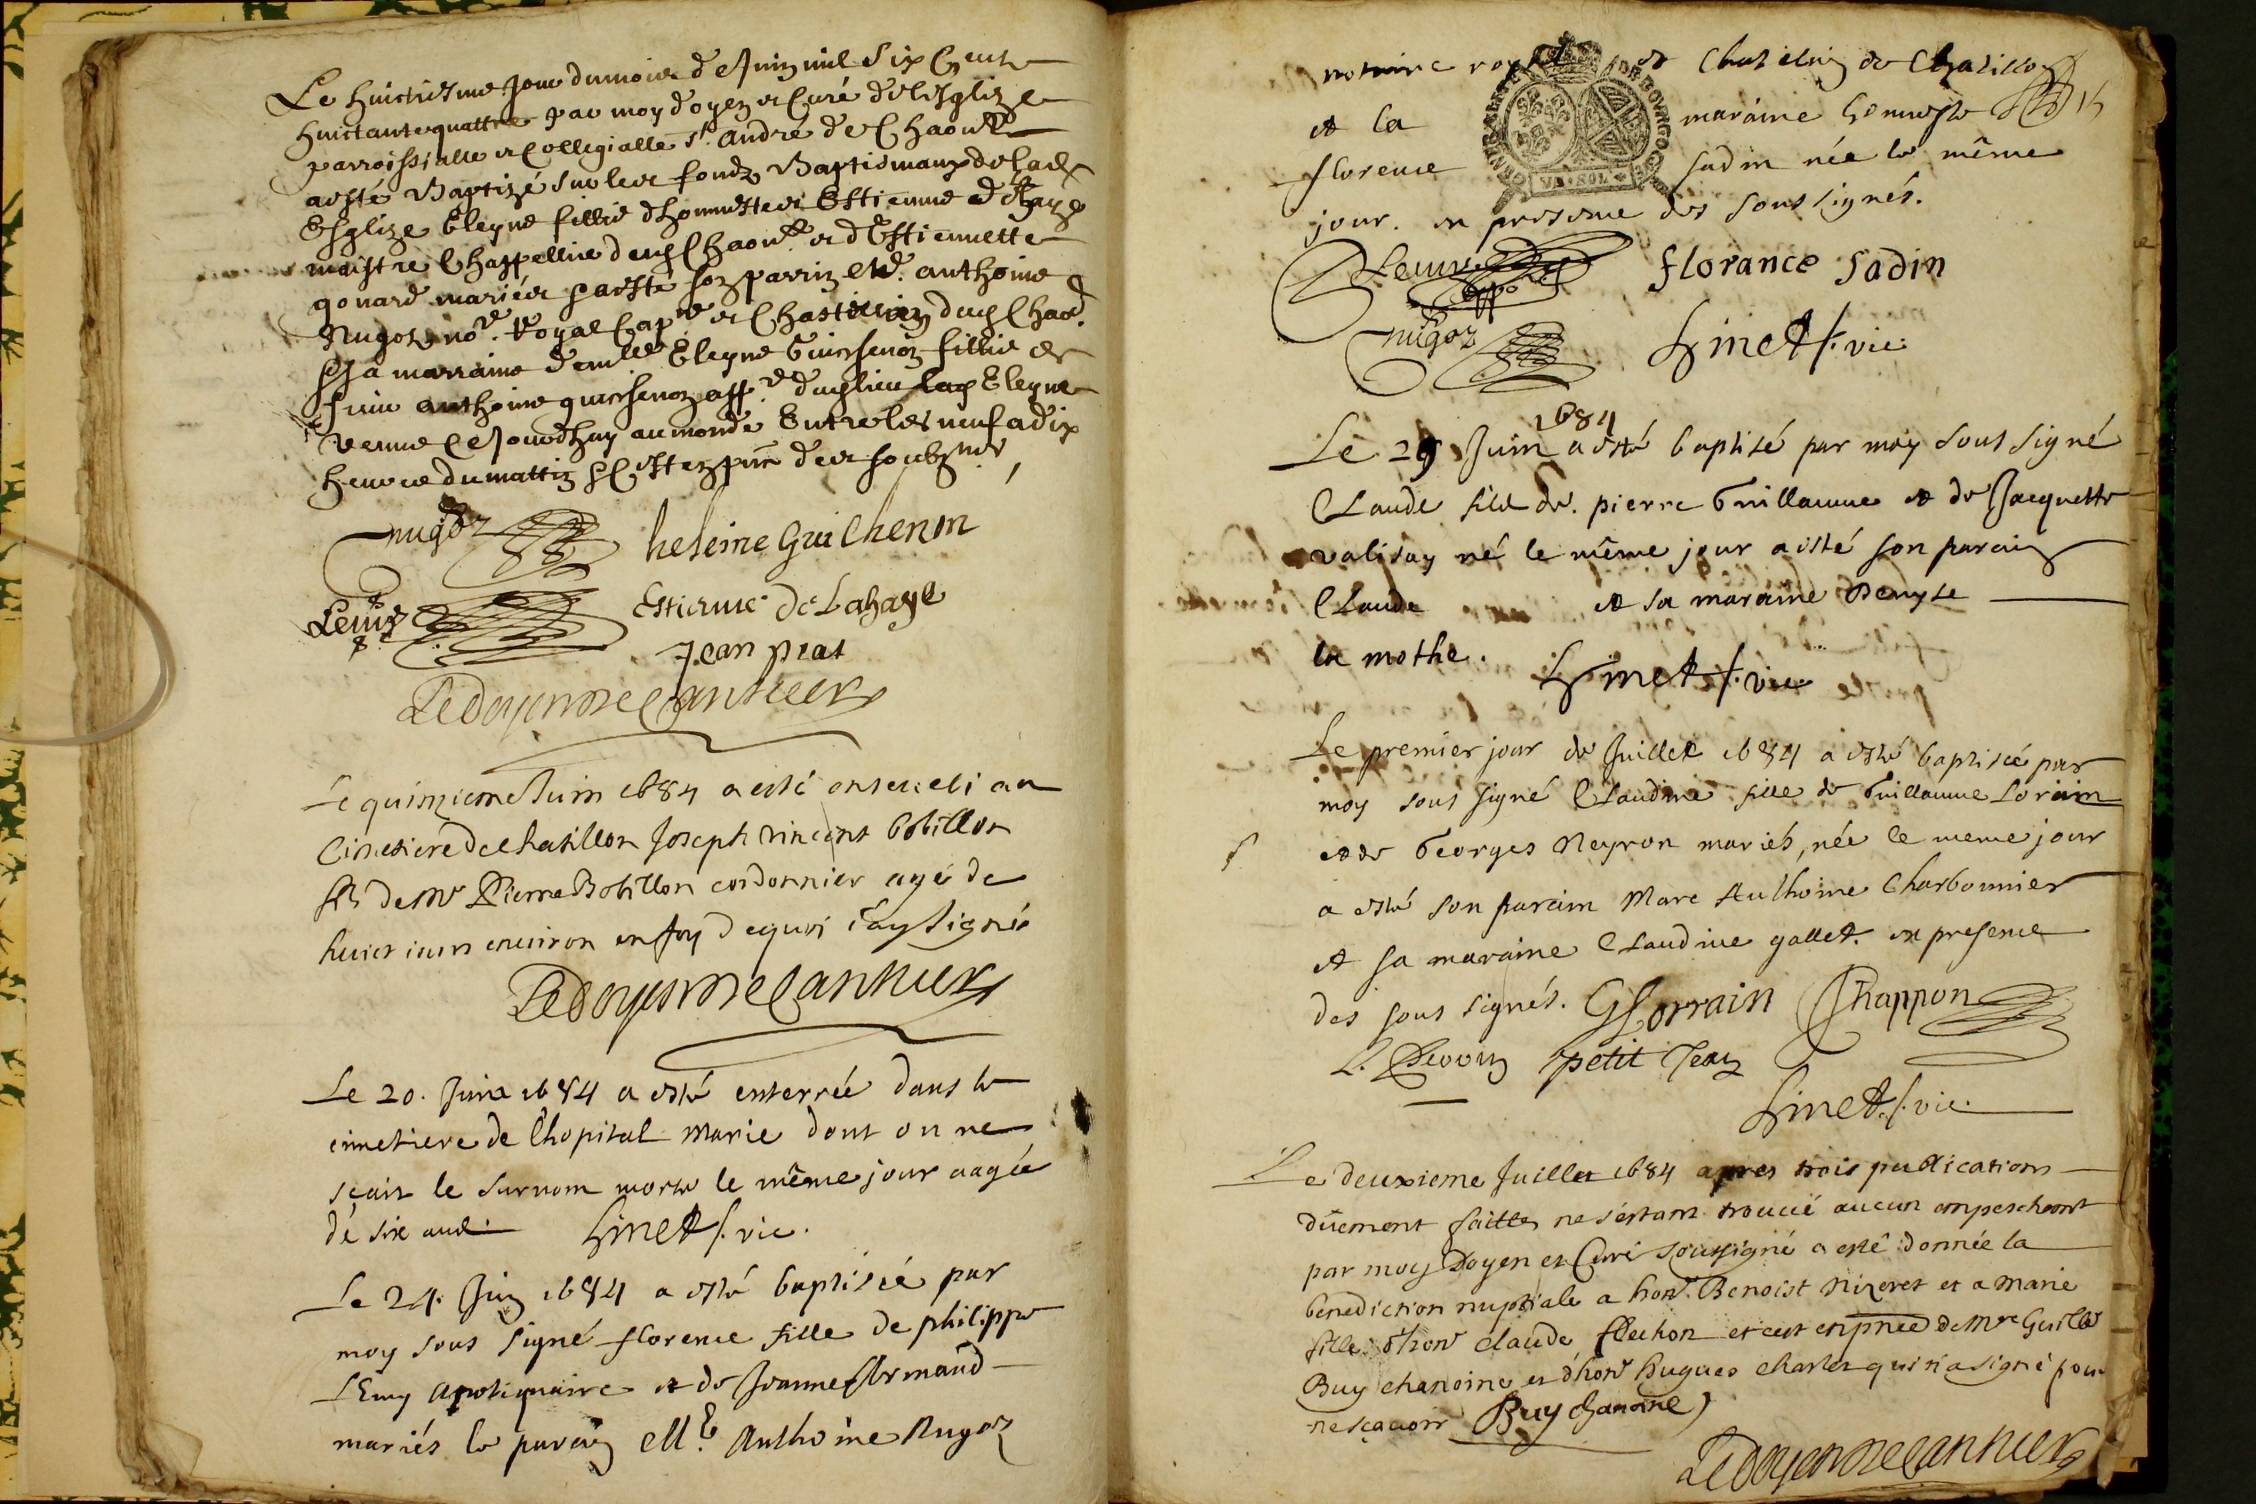 Le huictiesme jour du mois de Juin mil six Cents
huictante quattre par moy doyen et Curé de lesglize
parroissialle et Collegialle st. André de Chaon
a esté Baptizé sur les fondz Baptismaux de lad.
Esglize Eleyne fillie dhonneste Estienne
maistre Chappellier dud Chaon et dEstiennette
gonard mariés sa esté son parrin Me. anthoine
Nugoz no.re Royal Cap.ne et Chastelain dud Chaon.
Sa marraine demlle Eleyne Guichenon fillie de
feu anthoine guichenon dud lieu lad Eleyne
venue Ce Jourdhuy au monde Entre les neuf a dix
heures du mattin
nugoz heleine Guichenon
Lemy Estienne de Lahaye
Jean prat
Le doyen De Canthieu
Le quinzieme Juin 1684 a esté enseueli au
Cimetiere de chatillon Joseph vincent bobillon
fils de Mr Pierre Bobillon cordonnier agé de
huict iours enuiron en foy de quoi iay signé
Le doyen De Canthieu
Le 20. Juin 1684 a esté enterrée dans le
cimetiere de l'hopital Marie dont on ne
sçait le surnom morte le même jour aagée
de six ans. Linet s. vic.
Le 24. Juin 1684 a esté baptisée par
moy sous signé florence fille de philippe
LEmy Apotiquaire et de Jeanne Armand
mariés le parain Mr. Anthoine Nugoz
notaire royal et Chatelain de Chatillon
et la maraine honneste
florence sadin née le même
jour. en presence des sous signés.
Lemy florance sadin
nugoz Linet s. vic.
1684
Le 29 Juin a esté baptisé par moy sous signé
Claude fils de pierre Guillaume et de Jacquette
valisay né le même jour a esté son parain
Claude et sa maraine Denyse
la mothe. Linet s. vic.
Le premier jour de Juillet 1684 a esté baptisée par
moy sous signé Claudine fille de Guillaume Lorain
et de Georges Neyron mariés, née le meme jour
a esté son parain Marc Anthoine Charbonnier
et sa maraine Claudine gallet. en presence
des sous signés. G Lorrain Chappon
petit Jean
Linet s. vic.
Le deuxieme Juillet 1684 apres trois publications
düement faittes ne s'estant trouué aucun empeschemt
par moy Doyen et Curé soussigné a esté donnée la
benediction nuptiale a hon. Benoist Nizeret et a Marie
fille d'hon claude flechon et ceut en pñce de Mre Guille
Buy chanoine et d'hon hugues charles qui n'a signé pour
ne sçauoir Buy chanoine
Le doyen De Canthieu